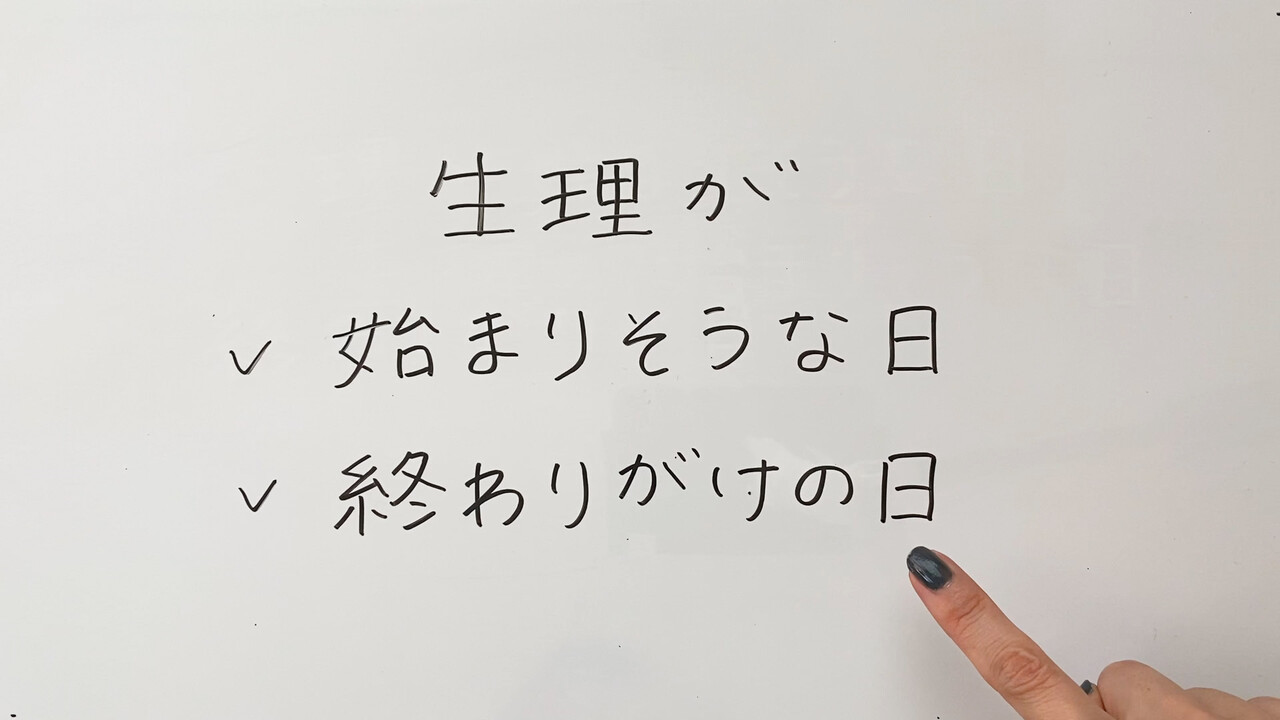 生理が
✓ 始まりそうな日
✓ 終わりがけの日